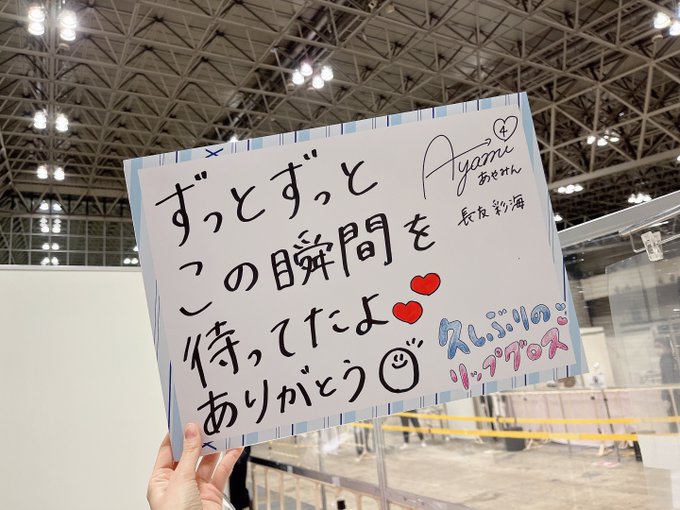 ずっとずっと
この瞬間を
待ってたよ
ありがとう
Ayami
4
あやみん
長友彩海
久しぶりの
リップグロス